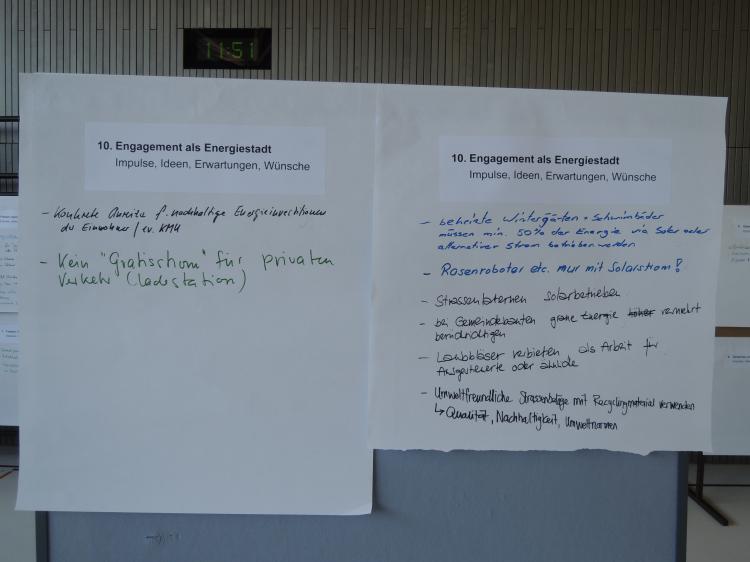 11:51
10. Engagement als Energiestadt
Impulse, Ideen, Erwartungen, Wünsche
- Konkrete Anreize f. nachhaltige Energieinvestitionen
der Einwohner / ev. KMU
- Kein "Gratisstrom" für privaten
Verkehr (Ladestation)
10. Engagement als Energiestadt
Impulse, Ideen, Erwartungen, Wünsche
- beheizte Wintergärten + Schwimbäder
müssen min. 50% der Energie via Solar oder
alternativer Strom betrieben werden
- Rasenroboter etc. nur mit Solarstrom!
- Strassenlaternen solarbetrieben
- bei Gemeindebauten graue Energie höher vermehrt
berücksichtigen
- Laubbläser verbieten als Arbeit für
Ausgesteuerte oder
- Umweltfreundliche Strassenbeläge mit Recyclingmaterial verwenden
↳ Qualität, Nachhaltigkeit, Umweltnormen